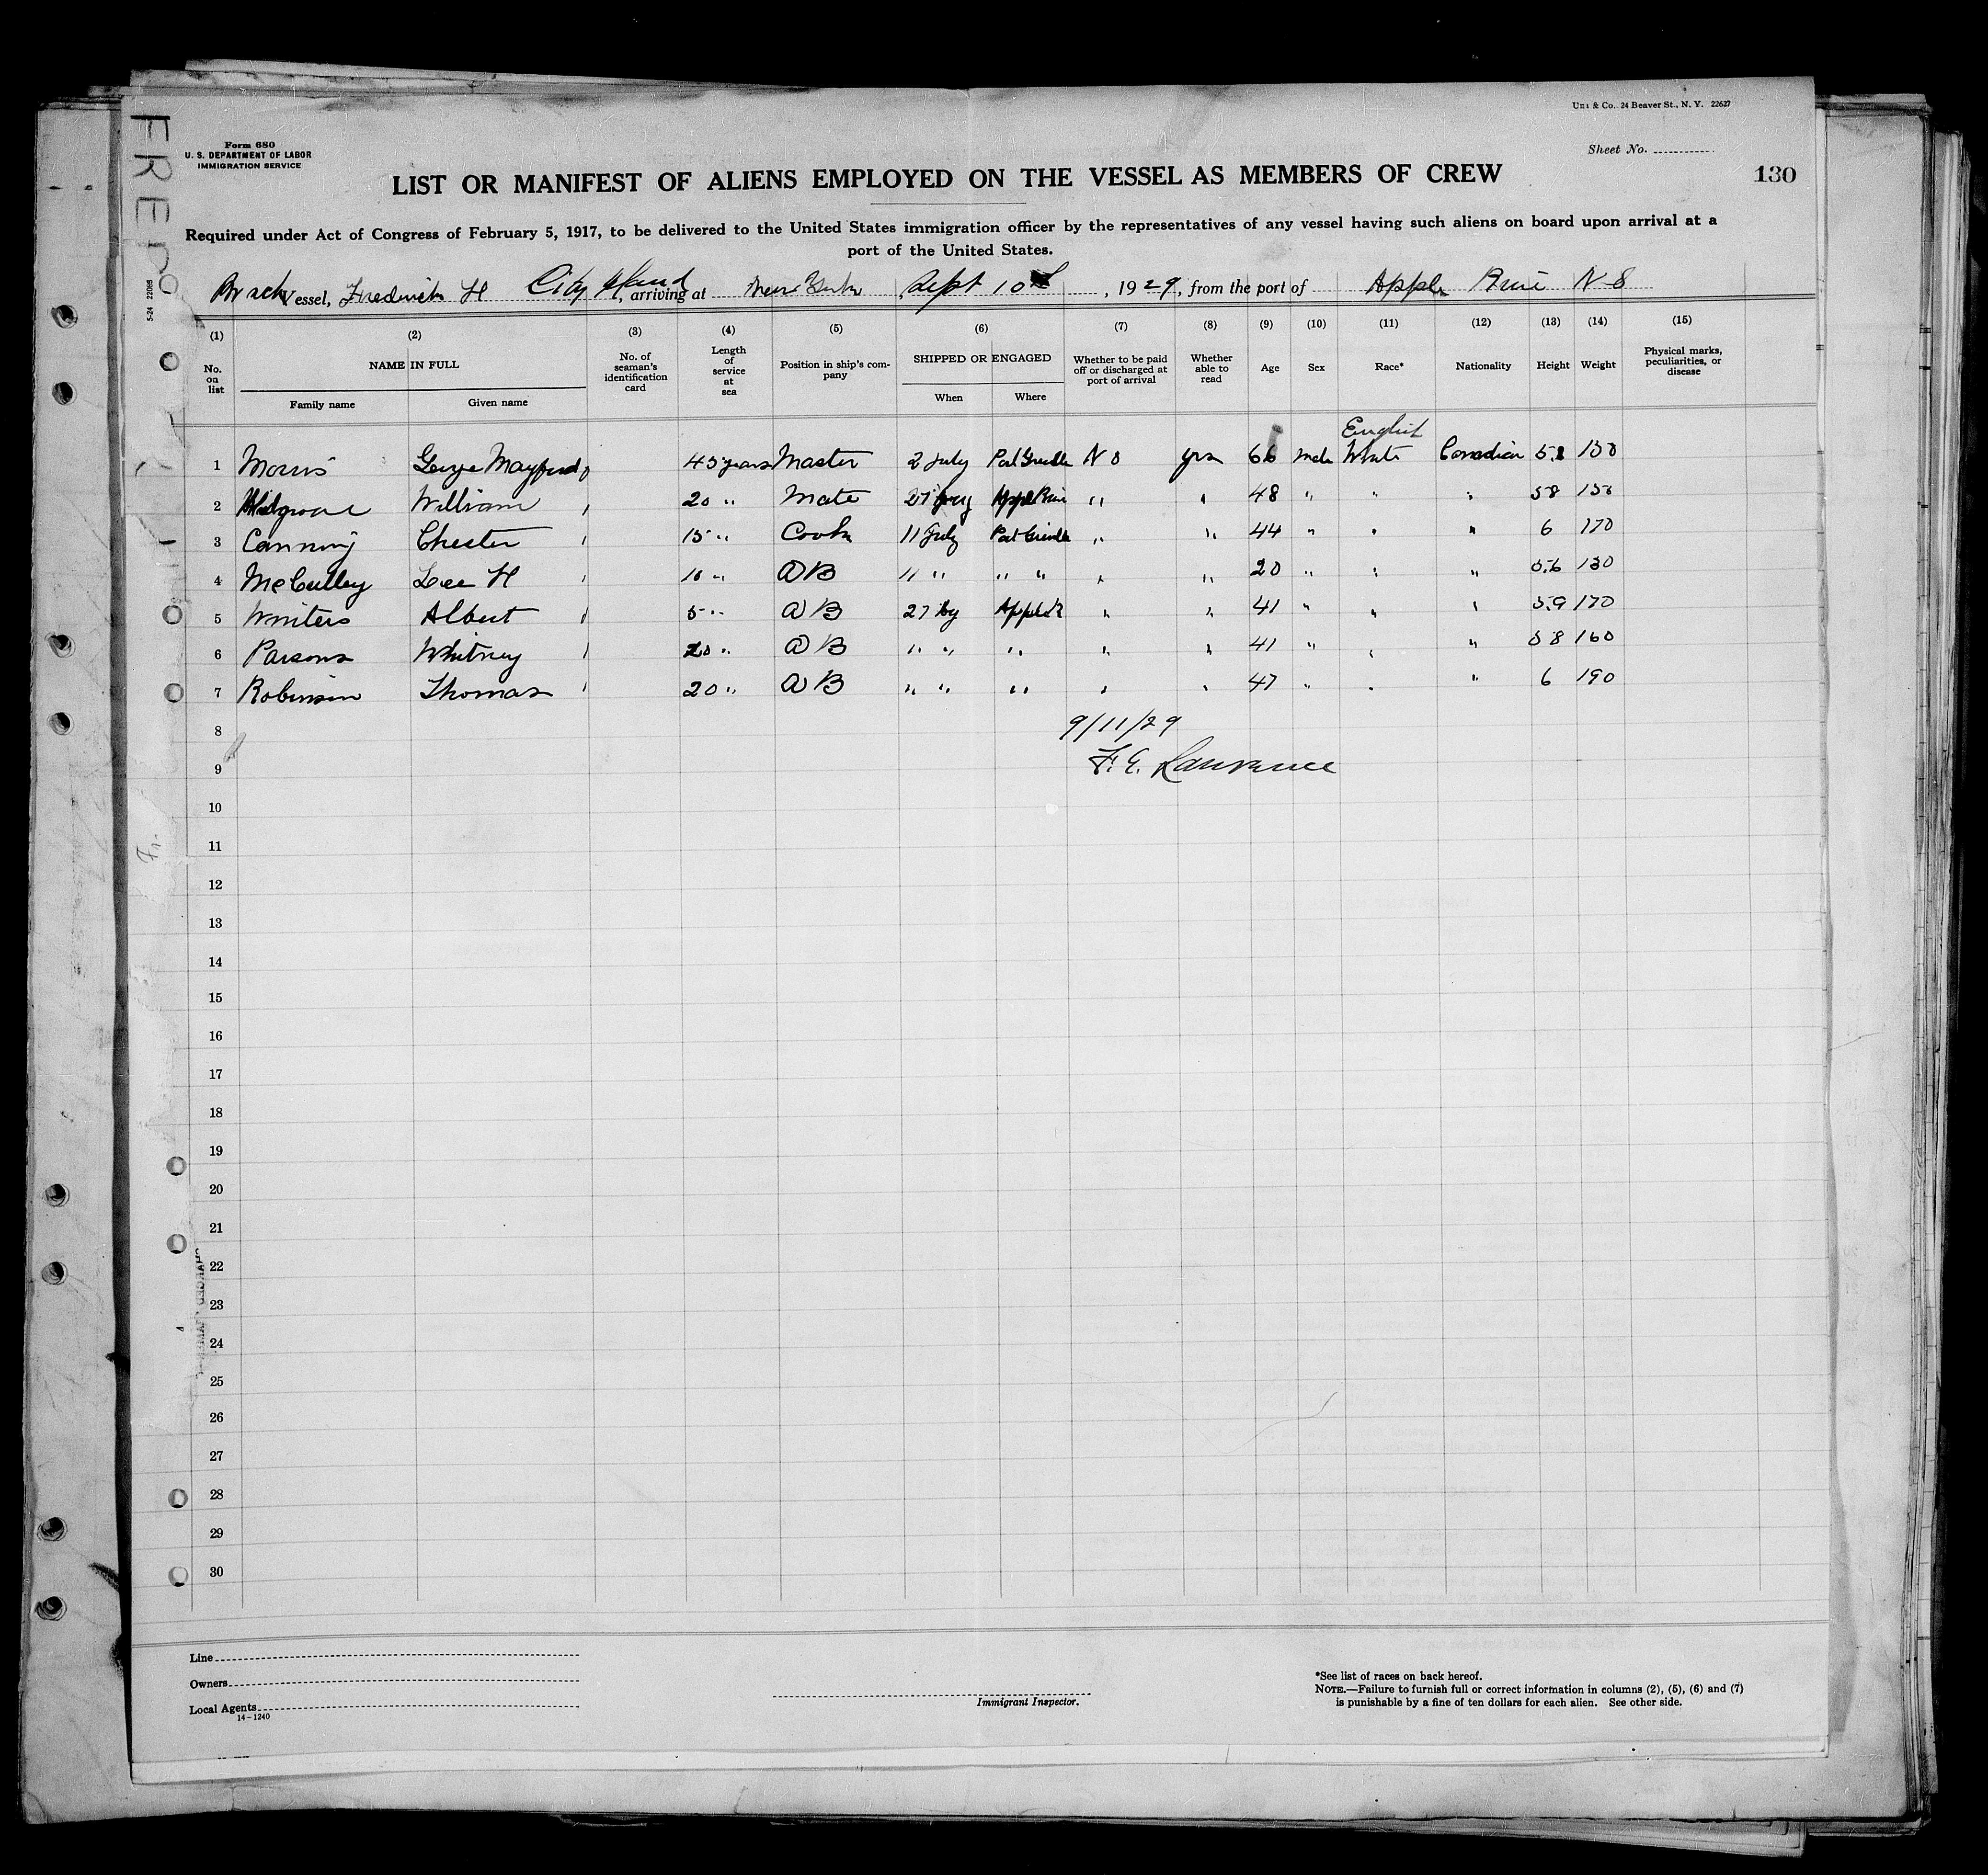 Uhl & Co. 24 Beaver St., N. Y. 22627
FRED
Form 680
U. S. DEPARTMENT OF LABOR
IMMIGRATION SERVICE
Sheet No.
LIST OR MANIFEST OF ALIENS EMPLOYED ON THE VESSEL AS MEMBERS OF CREW
130
Required under Act of Congress of February 5, 1917, to be delivered to the United States immigration officer by the representatives of any vessel having such aliens on board upon arrival at a
port of the United States.
Br sch Vessel, Frederick H City Island, arriving at New York Sept 10th, 1929, from the port of Apple River N S
(1) (2) (3) (4) (5) (6) (7) (8) (9) (10) (11) (12) (13) (14) (15)
No. on list NAME IN FULL No. of seaman's identification card Length of service at sea Position in ship's company SHIPPED OR ENGAGED Whether to be paid off or discharged at port of arrival Whether able to read Age Sex Race* Nationality Height Weight Physical marks, peculiarities, or disease
Family name Given name When Where
English
1 Morris George 45 years Master 2 July Port Greville No yes 66 male White Canadian 150
2 William 20 " Mate 27 Apple River " " 48 " " " 58
3 Canning Chester 15 " Cook 11 July Port Greville " " 44 " " " 6 170
4 McCulley Lee H 10 " AB 11 " " " " " 20 " " " 5.6 130
5 Winters Albert 5 " AB 27 Apple R " " 41 " " " 5.9 170
6 Parsons Whitney 20 " AB " " " " " 41 " " " 58 160
7 Robinson Thomas 20 " AB " " " " " 47 " " " 6 190
8 9/11/29
9 F. E. Lawrence
10
11
12
13
14
15
16
17
18
19
20
21
22
23
24
25
26
27
28
29
30
Line
Owners
Local Agents
14-1240
Immigrant Inspector.
*See list of races on back hereof.
NOTE.—Failure to furnish full or correct information in columns (2), (5), (6) and (7)
is punishable by a fine of ten dollars for each alien. See other side.